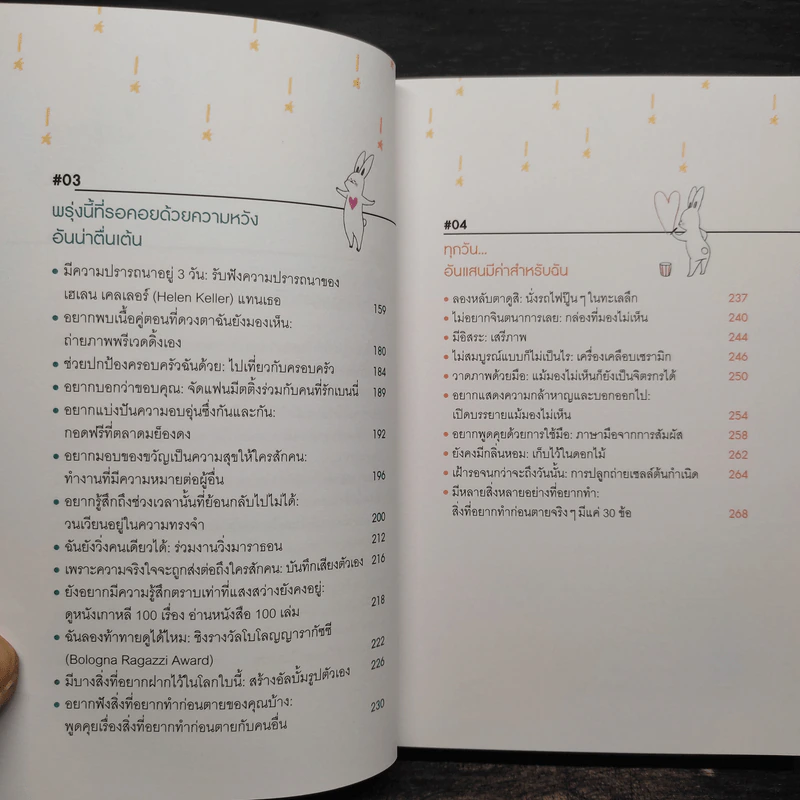 #03
พรุ่งนี้ที่รอคอยด้วยความหวัง
อันน่าตื่นเต้น
• มีความปรารถนาอยู่ 3 วัน: รับฟังความปรารถนาของ
เฮเลน เคลเลอร์ (Helen Keller) แทนเธอ 159
• อยากพบเนื้อคู่ตอนที่ดวงตาฉันยังมองเห็น:
ถ่ายภาพพรีเวดดิ้งเอง 180
• ช่วยปกป้องครอบครัวฉันด้วย: ไปเที่ยวกับครอบครัว 184
• อยากบอกว่าขอบคุณ: จัดแฟนมีตติ้งร่วมกับคนที่รักเบนนี่ 189
• อยากแบ่งปันความอบอุ่นซึ่งกันและกัน:
กอดฟรีที่ตลาดมย็องดง 192
• อยากมอบของขวัญเป็นความสุขให้ใครสักคน:
ทำงานที่มีความหมายต่อผู้อื่น 196
• อยากรู้สึกถึงช่วงเวลานั้นที่ย้อนกลับไปไม่ได้:
วนเวียนอยู่ในความทรงจำ 200
• ฉันยังวิ่งคนเดียวได้: ร่วมงานวิ่งมาราธอน 212
• เพราะความจริงใจจะถูกส่งต่อถึงใครสักคน: บันทึกเสียงตัวเอง 216
• ยังอยากมีความรู้สึกตราบเท่าที่แสงสว่างยังคงอยู่:
ดูหนังเกาหลี 100 เรื่อง อ่านหนังสือ 100 เล่ม 218
• ฉันลองท้าทายดูได้ไหม: ชิงรางวัลโบโลญญารากัซซี
(Bologna Ragazzi Award) 222
• มีบางสิ่งที่อยากฝากไว้ในโลกใบนี้: สร้างอัลบั้มรูปตัวเอง 226
• อยากฟังสิ่งที่อยากทำก่อนตายของคุณบ้าง:
พูดคุยเรื่องสิ่งที่อยากทำก่อนตายกับคนอื่น 230
#04
ทุกวัน...
อันแสนมีค่าสำหรับฉัน
• ลองหลับตาดูสิ: นั่งรถไฟปู๊น ๆ ในทะเลลึก 237
• ไม่อยากจินตนาการเลย: กล่องที่มองไม่เห็น 240
• มีอิสระ: เสรีภาพ 244
• ไม่สมบูรณ์แบบก็ไม่เป็นไร: เครื่องเคลือบเซรามิก 246
• วาดภาพด้วยมือ: แม้มองไม่เห็นก็ยังเป็นจิตรกรได้ 250
• อยากแสดงความกล้าหาญและบอกออกไป:
เปิดบรรยายแม้มองไม่เห็น 254
• อยากพูดคุยด้วยการใช้มือ: ภาษามือจากการสัมผัส 258
• ยังคงมีกลิ่นหอม: เก็บไว้ในดอกไม้ 262
• เฝ้ารอจนกว่าจะถึงวันนั้น: การปลูกถ่ายเซลล์ต้นกำเนิด 264
• มีหลายสิ่งหลายอย่างที่อยากทำ:
สิ่งที่อยากทำก่อนตายจริง ๆ มีแค่ 30 ข้อ 268